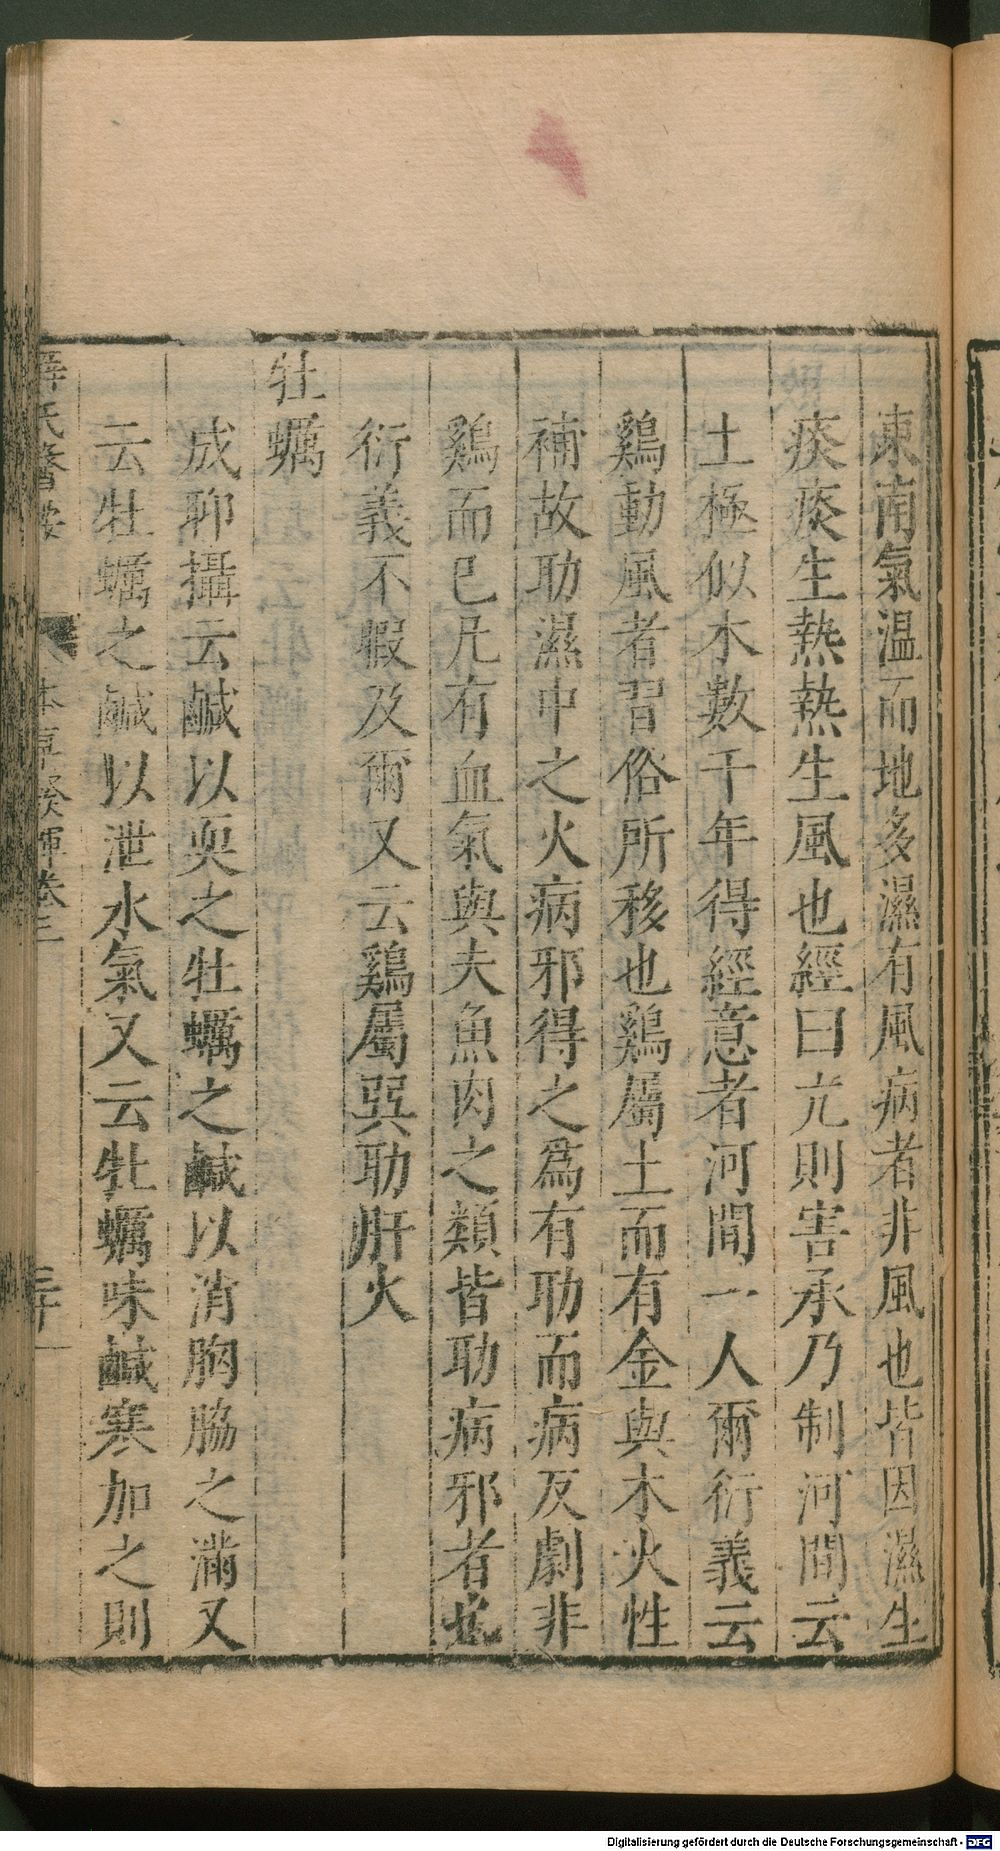 東南氣温而地多濕有風病者非風也皆因濕生
痰痰生熱熱生風也經曰亢則害承乃制河間云
土極似木數千年得經意者河間一人爾衍義云
鷄動風者習俗所移也鷄屬土而有金與木火性
補故助濕中之火病邪得之爲有助而病反劇非
鷄而已凡有血氣與夫魚肉之類皆助病邪者也
衍義不暇及爾又云鷄屬巽助肝火
牡蠣
成聊攝云鹹以耎之牡蠣之鹹以消胸脇之滿又
云牡蠣之鹹以泄水氣又云牡蠣味鹹寒加之則
薛氏醫按
本草發揮卷三
三十一
Digitalisierung gefördert durch die Deutsche Forschungsgemeinschaft - DFG